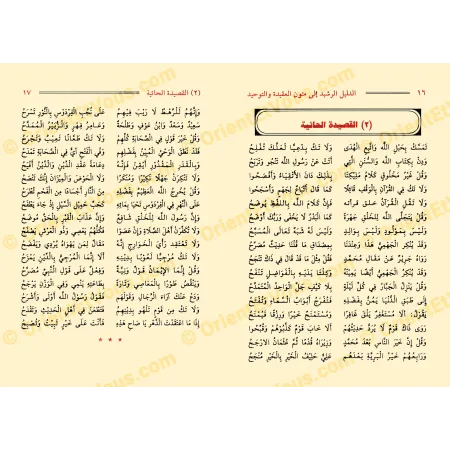 ١٦ الدليل الرشيد إلى متون العقيدة والتوحيد
(٢) القصيدة الحائية
تَمَسَّكْ بِحَبْلِ اللَّهِ وَاتَّبِعِ الْهُدَى وَلَا تَكُ بِدْعِيًّا لَعَلَّكَ تُفْلِحُ
وَدِنْ بِكِتَابِ اللَّهِ وَالسُّنَنِ الَّتِي أَتَتْ عَنْ رَسُولِ اللَّهِ تَنْجُو وَتَرْبَحُ
وَقُلْ غَيْرُ مَخْلُوقٍ كَلَامُ مَلِيكِنَا بِذَلِكَ دَانَ الْأَتْقِيَاءُ وَأَفْصَحُوا
وَلَا تَكُ فِي الْقُرْآنِ بِالْوَقْفِ قَائِلًا كَمَا قَالَ أَتْبَاعٌ لِجَهْمٍ وَأَسْجَحُوا
وَلَا تَقُلِ الْقُرْآنُ خَلْقٌ قَرَأْتُهُ فَإِنَّ كَلَامَ اللَّهِ بِاللَّفْظِ يُوضَحُ
وَقُلْ يَتَجَلَّى اللَّهُ لِلْخَلْقِ جَهْرَةً كَمَا الْبَدْرُ لَا يَخْفَى وَرَبُّكَ أَوْضَحُ
وَلَيْسَ بِمَوْلُودٍ وَلَيْسَ بِوَالِدٍ وَلَيْسَ لَهُ شِبْهٌ تَعَالَى الْمُسَبَّحُ
وَقَدْ يُنْكِرُ الْجَهْمِيُّ هَذَا وَعِنْدَنَا بِمِصْدَاقِ مَا قُلْنَا حَدِيثٌ مُصَرِّحُ
رَوَاهُ جَرِيرٌ عَنْ مَقَالِ مُحَمَّدٍ فَقُلْ مِثْلَ مَا قَدْ قَالَ فِي ذَاكَ تَنْجَحُ
وَقَدْ يُنْكِرُ الْجَهْمِيُّ أَيْضًا يَمِينَهُ وَكِلْتَا يَدَيْهِ بِالْفَوَاضِلِ تَنْفَحُ
وَقُلْ يَنْزِلُ الْجَبَّارُ فِي كُلِّ لَيْلَةٍ بِلَا كَيْفَ جَلَّ الْوَاحِدُ الْمُتَمَدَّحُ
إِلَى طَبَقِ الدُّنْيَا يَمُنُّ بِفَضْلِهِ فَتُفْرَجُ أَبْوَابُ السَّمَاءِ وَتُفْتَحُ
يَقُولُ: أَلَا مُسْتَغْفِرٌ يَلْقَ غَافِرًا وَمُسْتَمْنِحٌ خَيْرًا وَرِزْقًا فَيُمْنَحُ
رَوَى ذَاكَ قَوْمٌ لَا يُرَدُّ حَدِيثُهُمْ أَلَا خَابَ قَوْمٌ كَذَّبُوهُمْ وَقُبِّحُوا
وَقُلْ إِنَّ خَيْرَ النَّاسِ بَعْدَ مُحَمَّدٍ وَزِيرَاهُ قُدْمًا ثُمَّ عُثْمَانُ الَارْجَحُ
وَرَابِعُهُمْ خَيْرُ الْبَرِيَّةِ بَعْدَهُمْ عَلِيٌّ حَلِيفُ الْخَيْرِ بِالْخَيْرِ مُنْجِحُ
(٢) القصيدة الحائية ١٧
وَإِنَّهُمُ لَلرَّهْطُ لَا رَيْبَ فِيهِمُ عَلَى نُجُبِ الْفِرْدَوْسِ بِالنُّورِ تَسْرَحُ
سَعِيدٌ وَسَعْدٌ وَابْنُ عَوْفٍ وَطَلْحَةٌ وَعَامِرُ فِهْرٍ وَالزُّبَيْرُ الْمُمَدَّحُ
وَقُلْ خَيْرَ قَوْلٍ فِي الصَّحَابَةِ كُلِّهِمْ وَلَا تَكُ طَعَّانًا تَعِيبُ وَتَجْرَحُ
فَقَدْ نَطَقَ الْوَحْيُ الْمُبِينُ بِفَضْلِهِمْ وَفِي الْفَتْحِ آيٌ فِي الصَّحَابَةِ تَمْدَحُ
وَبِالْقَدَرِ الْمَقْدُورِ أَيْقِنْ فَإِنَّهُ دِعَامَةُ عِقْدِ الدِّينِ وَالدِّينُ أَفْيَحُ
وَلَا تُنْكِرَنْ جَهْلًا نَكِيرًا وَمُنْكَرًا وَلَا الْحَوْضَ وَالْمِيزَانَ إِنَّكَ تُنْصَحُ
وَقُلْ يُخْرِجُ اللَّهُ الْعَظِيمُ بِفَضْلِهِ مِنَ النَّارِ أَجْسَادًا مِنَ الْفَحْمِ تُطْرَحُ
عَلَى النَّهْرِ فِي الْفِرْدَوْسِ تَحْيَا بِمَائِهِ كَحَبِّ حَمِيلِ السَّيْلِ إِذْ جَاءَ يَطْفَحُ
وَإِنَّ رَسُولَ اللَّهِ لِلْخَلْقِ شَافِعٌ وَإِنَّ عَذَابَ الْقَبْرِ بِالْحَقِّ مُوضَحُ
وَلَا تُكَفِّرَنْ أَهْلَ الصَّلَاةِ وَإِنْ عَصَوْا فَكُلُّهُمُ يَعْصِي وَذُو الْعَرْشِ يَصْفَحُ
وَلَا تَعْتَقِدْ رَأْيَ الْخَوَارِجِ إِنَّهُ مَقَالٌ لِمَنْ يَهْوَاهُ يُرْدِي وَيَفْضَحُ
وَلَا تَكُ مُرْجِيًّا لَعُوبًا بِدِينِهِ أَلَا إِنَّمَا الْمُرْجِيُّ بِالدِّينِ يَمْزَحُ
وَقُلْ إِنَّمَا الْإِيمَانُ قَوْلٌ وَنِيَّةٌ وَفِعْلٌ عَلَى قَوْلِ النَّبِيِّ مُصَرَّحُ
وَيَنْقُصُ طَوْرًا بِالْمَعَاصِي وَتَارَةً بِطَاعَتِهِ يَنْمِي وَفِي الْوَزْنِ يَرْجَحُ
وَدَعْ عَنْكَ آرَاءَ الرِّجَالِ وَقَوْلَهُمْ فَقَوْلُ رَسُولِ اللَّهِ أَوْلَى وَأَشْرَحُ
وَلَا تَكُ مِنْ قَوْمٍ تَلَهَّوْا بِدِينِهِمْ فَتَطْعَنَ فِي أَهْلِ الْحَدِيثِ وَتَقْدَحُ
إِذَا مَا اعْتَقَدْتَ الدَّهْرَ يَا صَاحِ هَذِهِ فَأَنْتَ عَلَى خَيْرٍ تَبِيتُ وَتُصْبِحُ
* * *